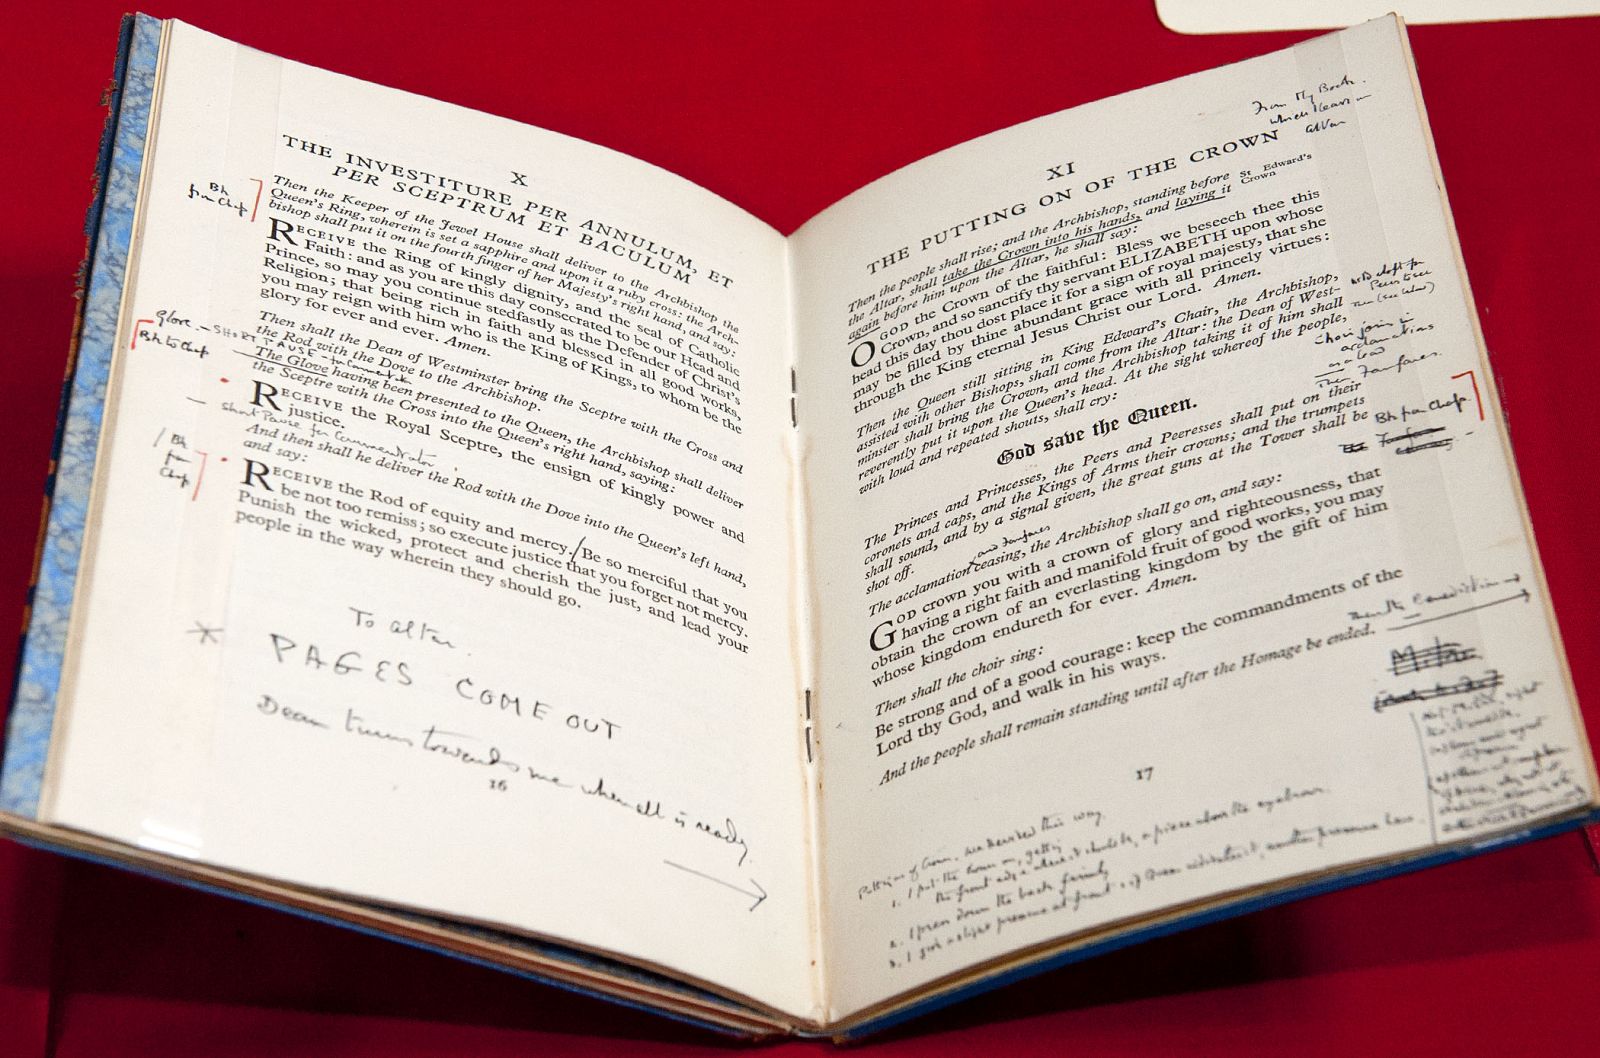 X
THE INVESTITURE PER ANNULUM, ET
PER SCEPTRUM ET BACULUM
Bk
from Chap
Then the Keeper of the Jewel House shall deliver to the Archbishop the
Queen's Ring, wherein is set a sapphire and upon it a ruby cross: the Arch-
bishop shall put it on the fourth finger of her Majesty's right hand, and say:
RECEIVE the Ring of kingly dignity, and the seal of Catholic
Faith: and as you are this day consecrated to be our Head and
Prince, so may you continue stedfastly as the Defender of Christ's
Religion; that being rich in faith and blessed in all good works,
you may reign with him who is the King of Kings, to whom be the
glory for ever and ever. Amen.
glove – SHORT PAUSE –
Bk to Chap
Then shall the Dean of Westminster bring the Sceptre with the Cross and
the Rod with the Dove to the Archbishop.
The Glove having been presented to the Queen, the Archbishop shall deliver
the Sceptre with the Cross into the Queen's right hand, saying:
RECEIVE the Royal Sceptre, the ensign of kingly power and
justice.
Short Pause for Commentator.
And then shall he deliver the Rod with the Dove into the Queen's left hand,
and say:
Bk
for
Chap
RECEIVE the Rod of equity and mercy. / Be so merciful that you
be not too remiss; so execute justice that you forget not mercy.
Punish the wicked, protect and cherish the just, and lead your
people in the way wherein they should go.
To altar.
PAGES COME OUT
Dean turns towards me when all is ready.
16
From My Book
which
altar
XI
THE PUTTING ON OF THE CROWN
Then the people shall rise; and the Archbishop, standing before
the Altar, shall take the Crown into his hands, and laying it St Edward's Crown
again before him upon the Altar, he shall say:
O GOD the Crown of the faithful: Bless we beseech thee this
Crown, and so sanctify thy servant ELIZABETH upon whose
head this day thou dost place it for a sign of royal majesty, that she
may be filled by thine abundant grace with all princely virtues:
through the King eternal Jesus Christ our Lord. Amen.
Then the Queen still sitting in King Edward's Chair, the Archbishop,
assisted with other Bishops, shall come from the Altar: the Dean of West-
minster shall bring the Crown, and the Archbishop taking it of him shall
reverently put it upon the Queen's head. At the sight whereof the people,
with loud and repeated shouts, shall cry:
Choir join in
acclamations
God save the Queen.
Then fanfares.
The Princes and Princesses, the Peers and Peeresses shall put on their
coronets and caps, and the Kings of Arms their crowns; and the trumpets
shall sound, and by a signal given, the great guns at the Tower shall be
shot off.
Bk from Chap.
and fanfares
The acclamation ceasing, the Archbishop shall go on, and say:
GOD crown you with a crown of glory and righteousness, that
having a right faith and manifold fruit of good works, you may
obtain the crown of an everlasting kingdom by the gift of him
whose kingdom endureth for ever. Amen.
Then shall the choir sing:
Be strong and of a good courage: keep the commandments of the
Lord thy God, and walk in his ways.
And the people shall remain standing until after the Homage be ended.
then the Benediction
17
Putting on of Crown. We decided this way.
1. I put the crown on, getting
the front edge where it should be, a piece above the eyebrow.
2. I press down the back firmly
3. I give a slight pressure at front & if Queen